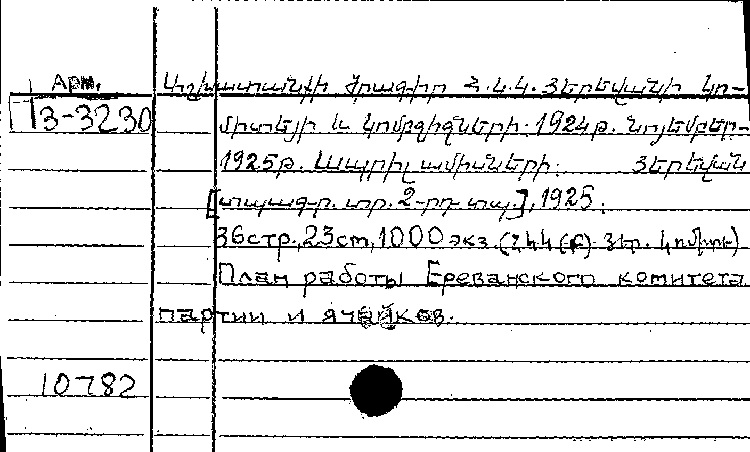 Арм.
Աշխատանքի ծրագիր Հ.Կ.Կ. Յերեվանի կո-
13-3230
միտեյի և կոմբջիջների 1924թ. նոյեմբեր-
1925թ. Ապրիլ ամիսների. Յերեվան
[տպագր. տր. 2-րդ տպ.], 1925.
36стр., 23cm, 1000 экз. (ՀԿԿ(բ) Յեր. Կոմիտե)
План работы Ереванского комитета
партии и ячейков.
10782